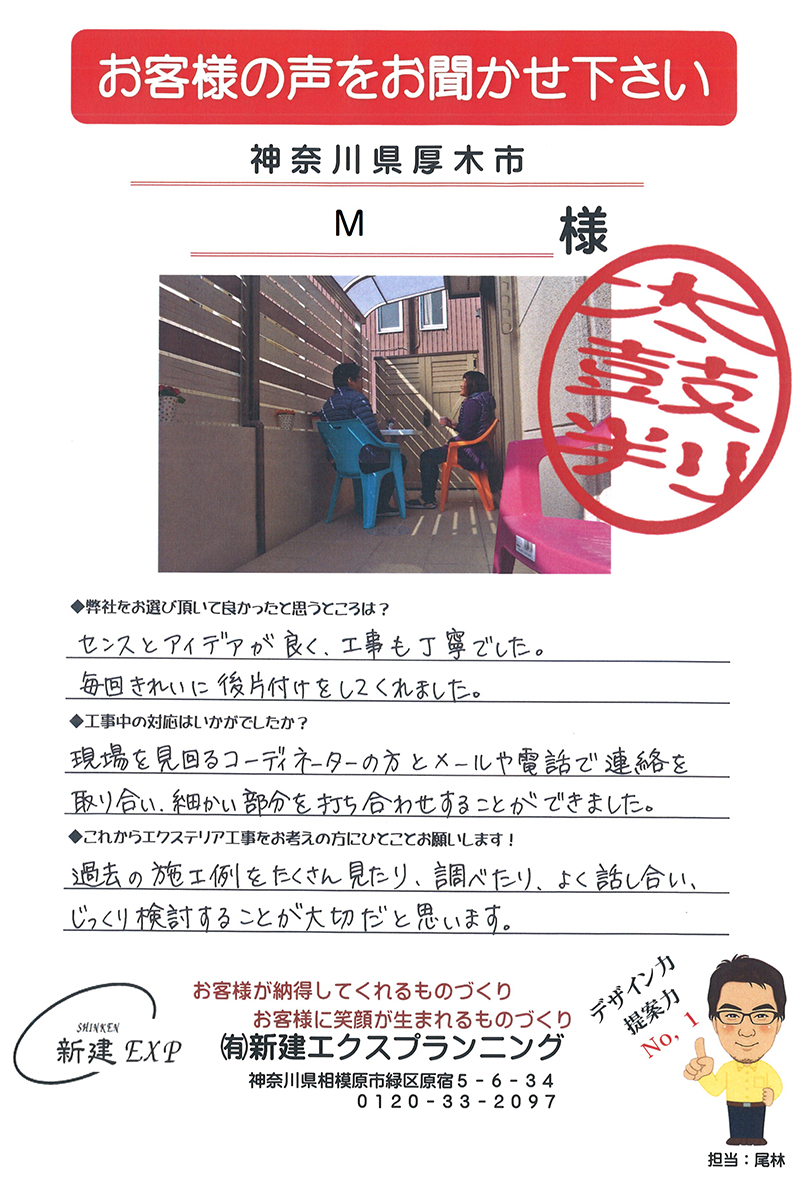 お客様の声をお聞かせ下さい
神奈川県厚木市
M 様
太鼓判
◆弊社をお選び頂いて良かったと思うところは？
センスとアイデアが良く、工事も丁寧でした。
毎回きれいに後片付けをしてくれました。
◆工事中の対応はいかがでしたか？
現場を見回るコーディネーターの方とメールや電話で連絡を
取り合い、細かい部分を打ち合わせすることができました。
◆これからエクステリア工事をお考えの方にひとことお願いします！
過去の施工例をたくさん見たり、調べたり、よく話し合い、
じっくり検討することが大切だと思います。
お客様が納得してくれるものづくり
お客様に笑顔が生まれるものづくり
SHINKEN
新建 EXP
㈲新建エクスプランニング
神奈川県相模原市緑区原宿５-６-３４
０１２０-３３-２０９７
デザイン力
提案力
No, 1
担当：尾林